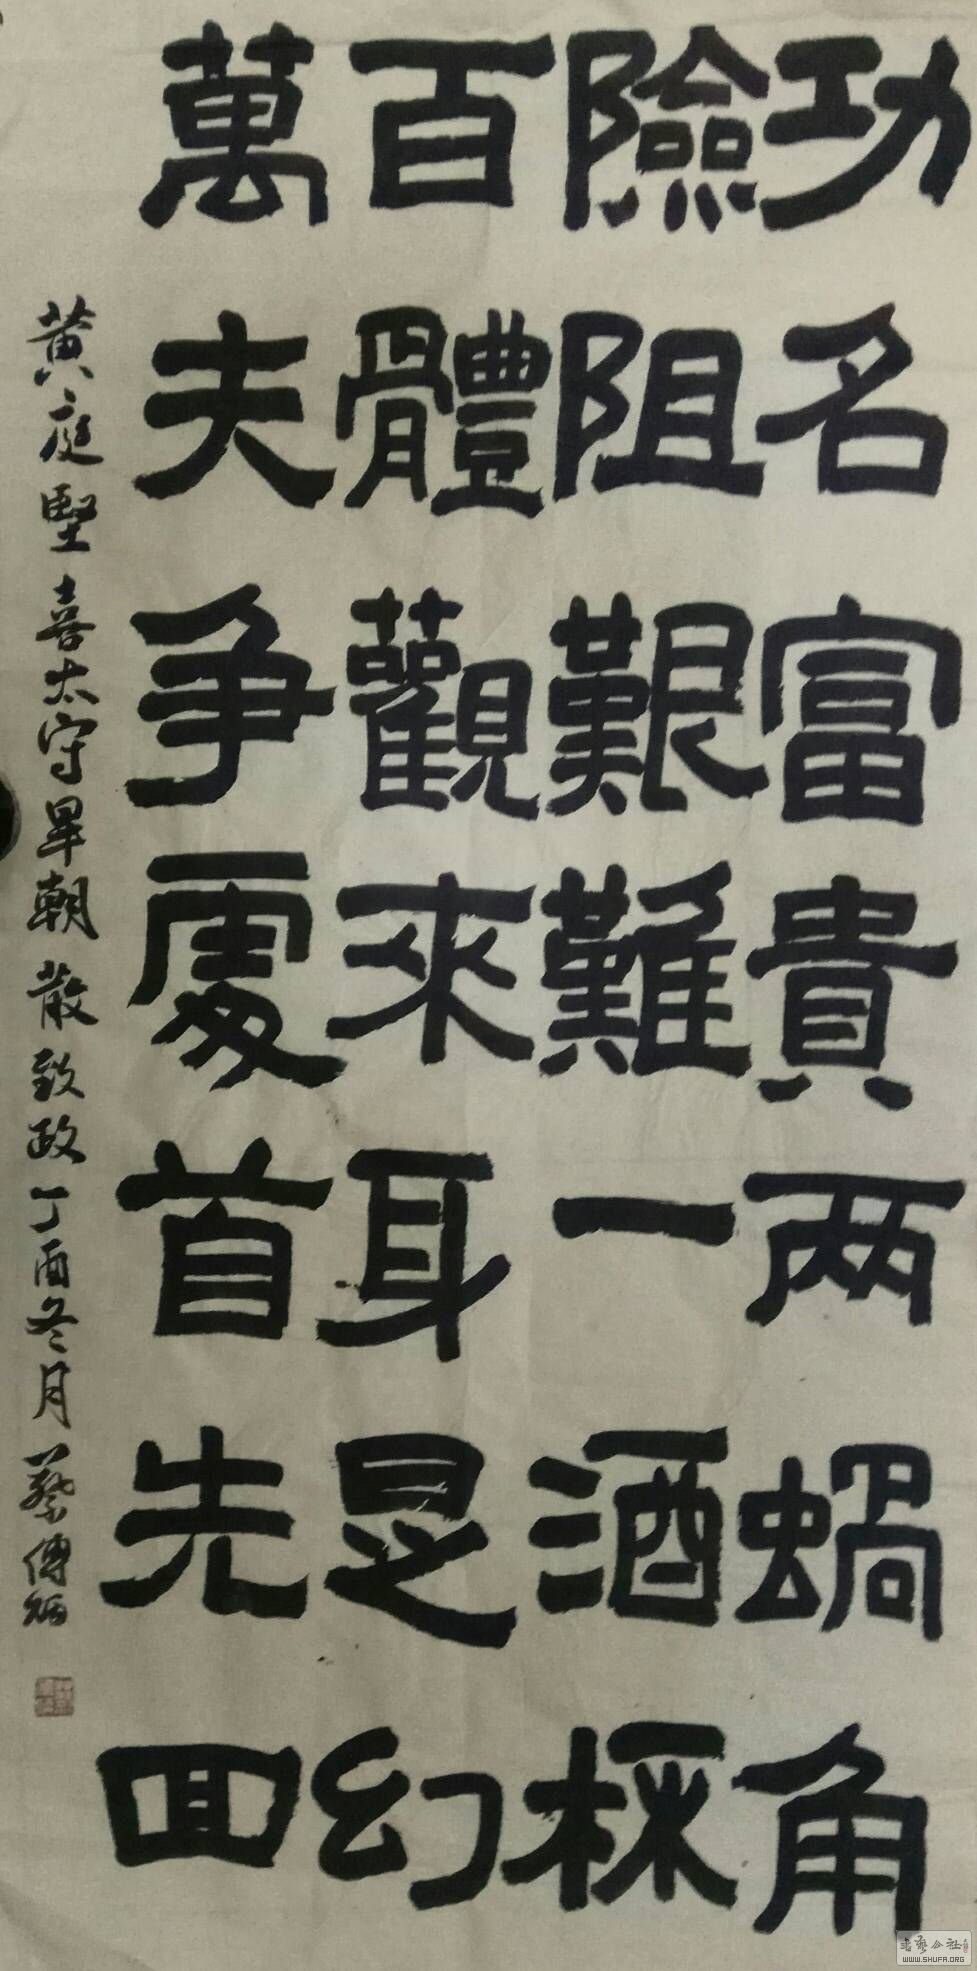 功名富貴两蝸角
險阻艱難一酒杯
百體觀來身是幻
萬夫争處首先回
黄庭堅喜太守畢朝散致政丁酉冬月蔡傳炳
书艺公社
WWW.SHUFA.ORG